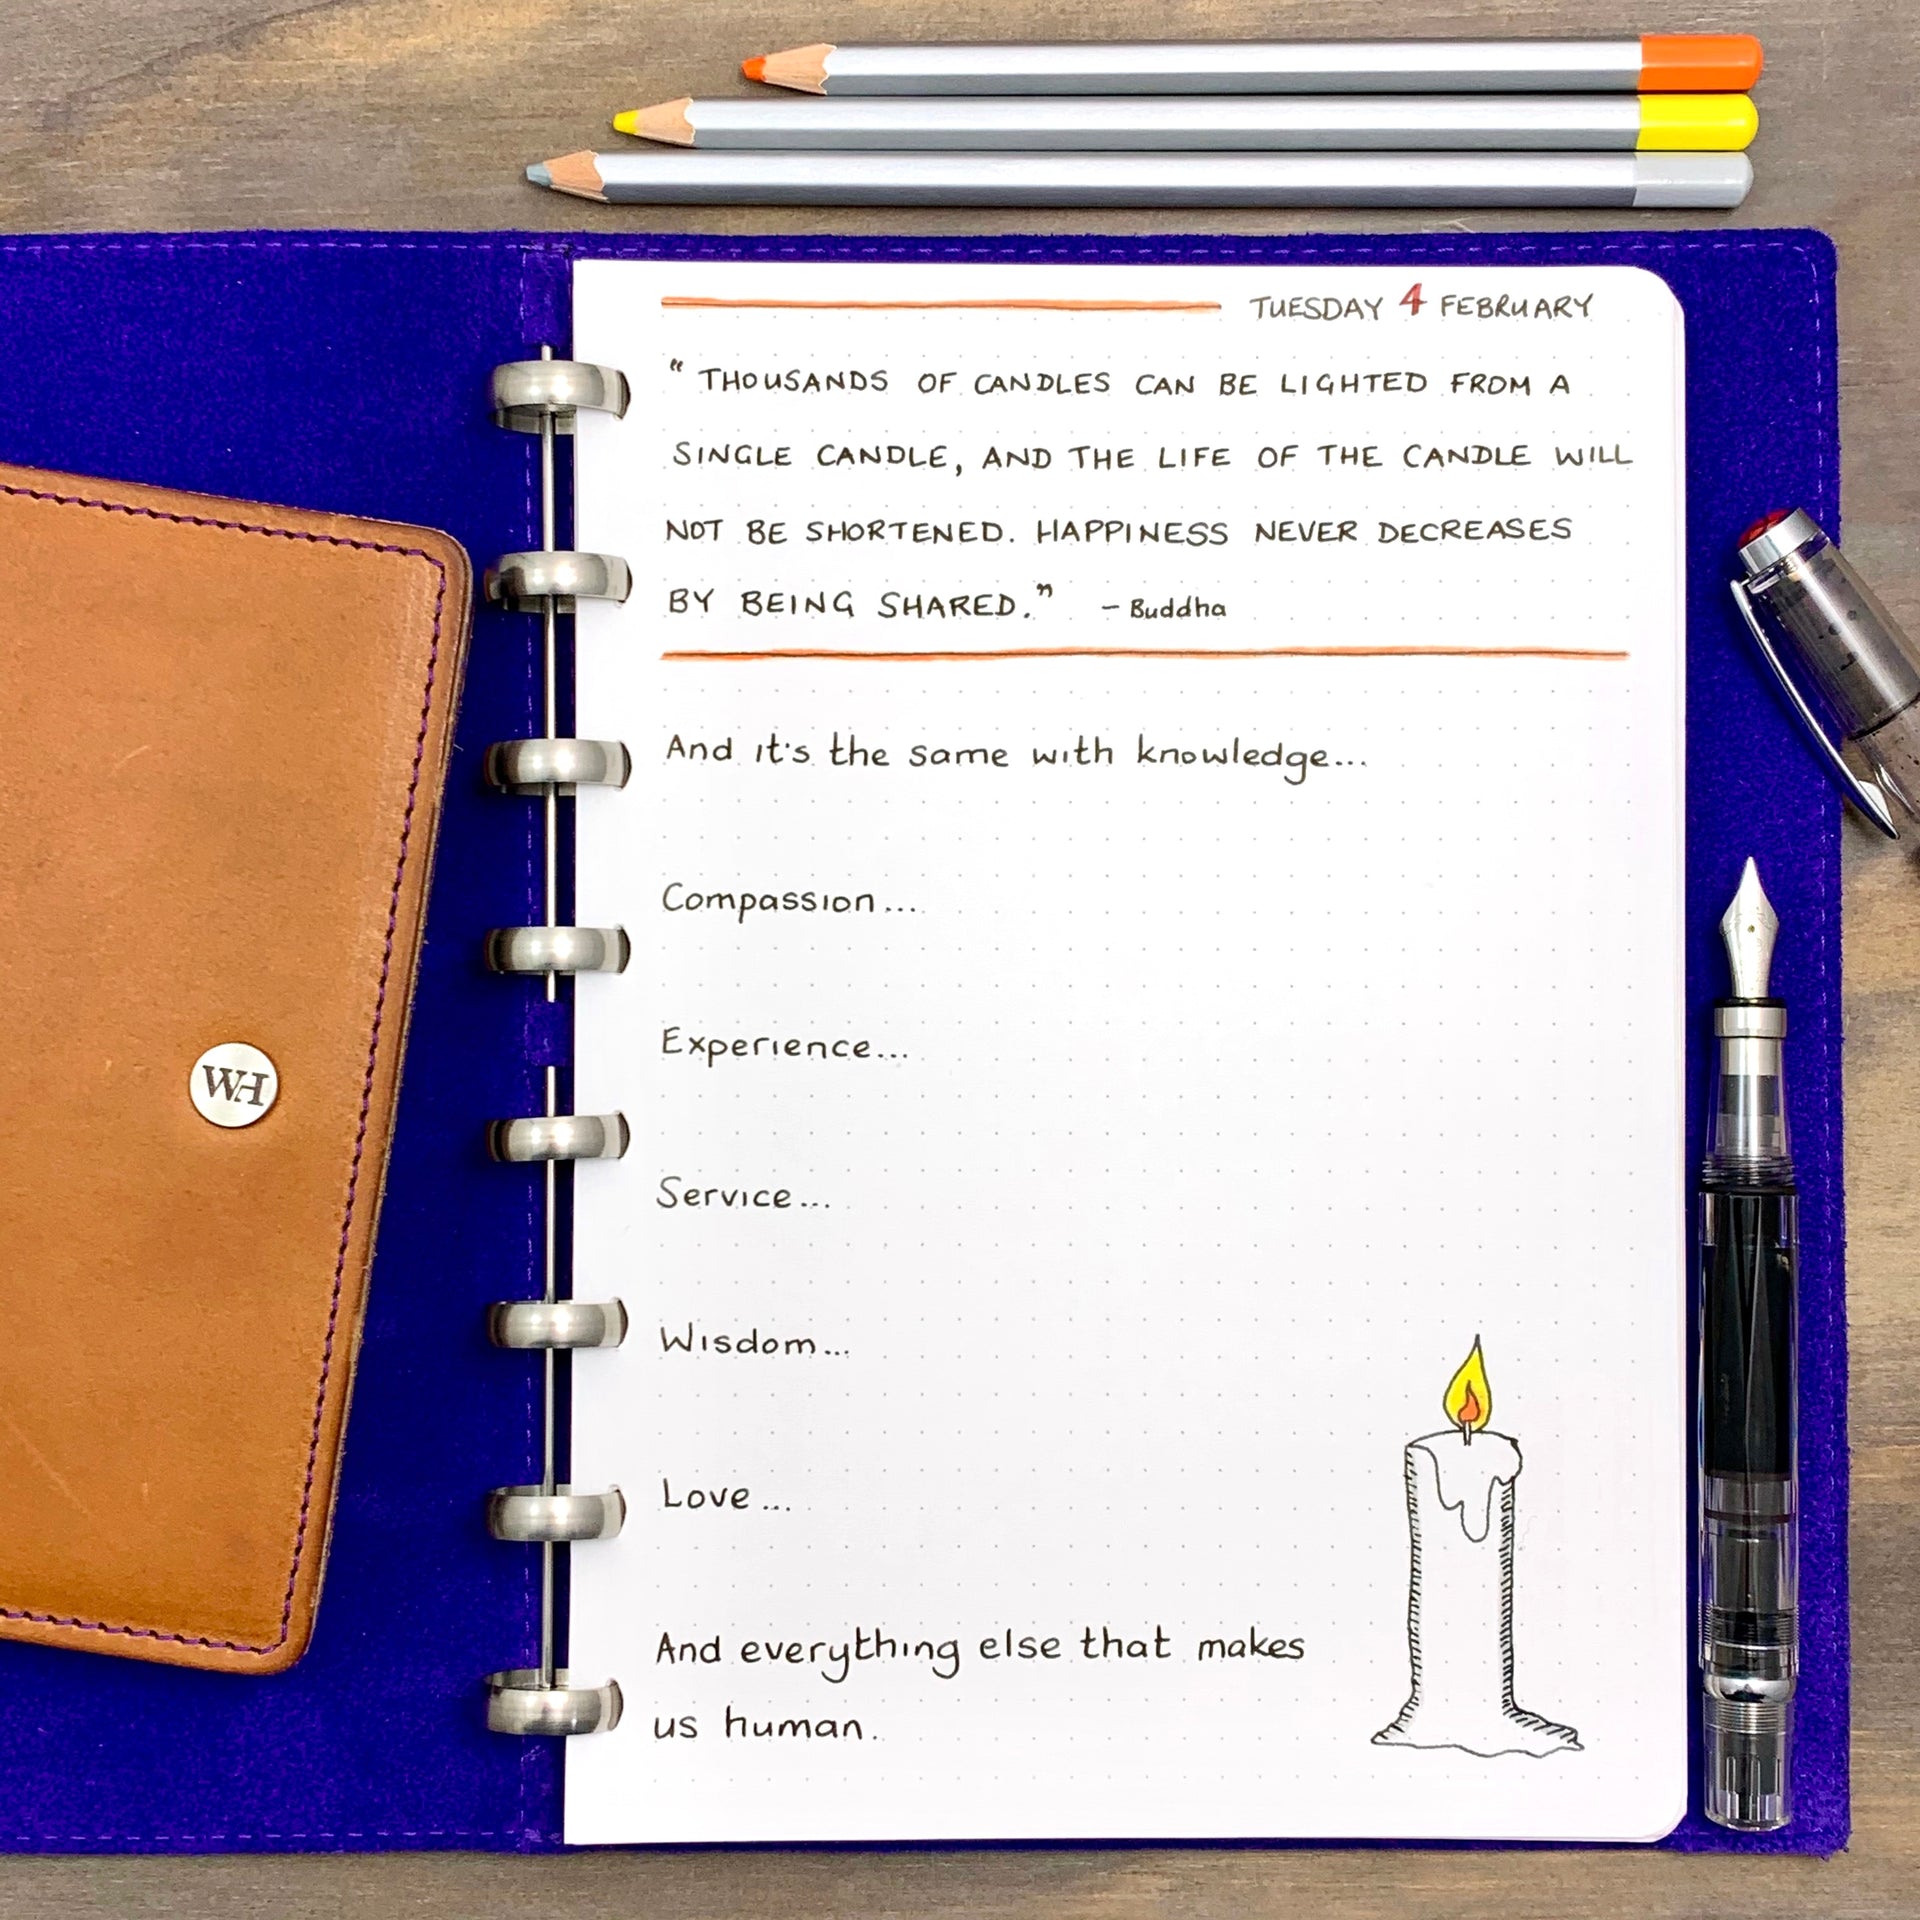 TUESDAY 4 FEBRUARY
"THOUSANDS OF CANDLES CAN BE LIGHTED FROM A
SINGLE CANDLE, AND THE LIFE OF THE CANDLE WILL
NOT BE SHORTENED. HAPPINESS NEVER DECREASES
BY BEING SHARED." - Buddha
And it's the same with knowledge...
Compassion...
Experience...
Service...
Wisdom...
Love...
And everything else that makes
us human.
WH